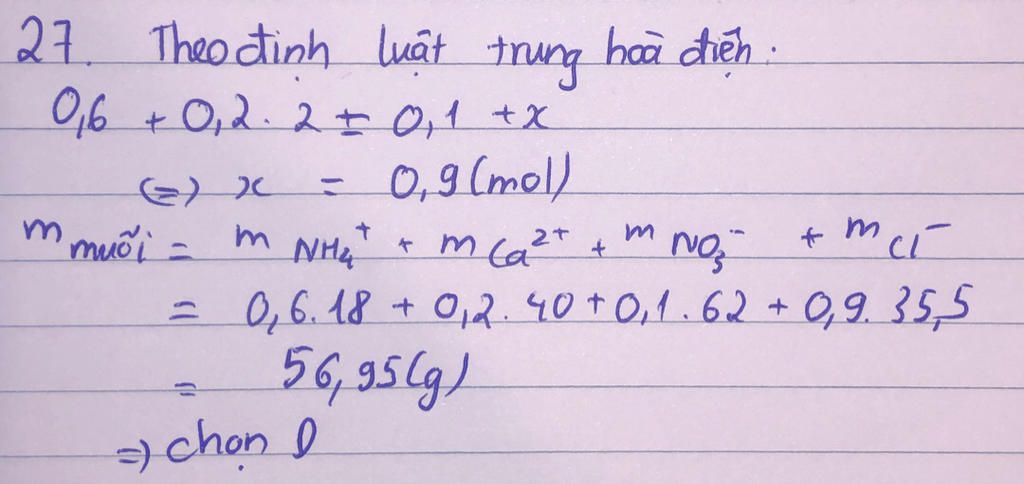 27. Theo định luật trung hoà điện.
0,6 + 0,2. 2 = 0,1 + x
(=) x = 0,9 (mol)
m muối = m NH₄⁺ + m Ca²⁺ + m NO₃⁻ + m Cl⁻
= 0,6.18 + 0,2. 40 + 0,1. 62 + 0,9. 35,5
= 56,95 (g)
=) chọn D